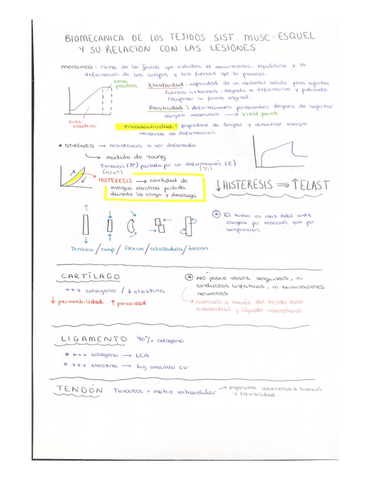 BIOMECANICA DE LOS TEJIDOS SIST MUSC-ESQUEL
Y SU RELACIÓN CON LAS LESIONES
mecanica: rama de la física que estudia el movimiento, equilibrio y la
deformación de los cuerpos y las fuerzas que lo provocan.
zona plástica
zona elástica
Elasticidad: capacidad de un material sólido para soportar
fuerzas externas
recuperar su forma original.
Plasticidad: deformaciones permanentes después de soportar
cargas → yield point
Viscoelasticidad: propiedad de disipar y almacenar energía
mecánica de deformación
STIFFNES → resistencia a ser deformado
↳ modulo de Young
Tension (σ) por deformación (ε)
HISTERESIS → cantidad de
energía elástica perdida
durante la carga y descarga
↓HISTERESIS ⇒ ↑ELAST
El hueso es mas debil ante
cargas por que por
compresión
Tension / comp / Flexion / cizalladura / torsion
CARTÍLAGO
+++ colageno / ↓ elastina
↓ permeabilidad ↑ porosidad
No posee vasos sanguineos, ni
conductos linfáticos, ni terminaciones
nerviosas
↳ nutrición a través del tejido óseo
subcondral y líquido intersticial
LIGAMENTO 90% colageno
+++ colageno → LCA
+++ elastina → lig amarillo CV
TENDÓN Tenocitos + matriz extracelular → resistencia
y flexibilidad.